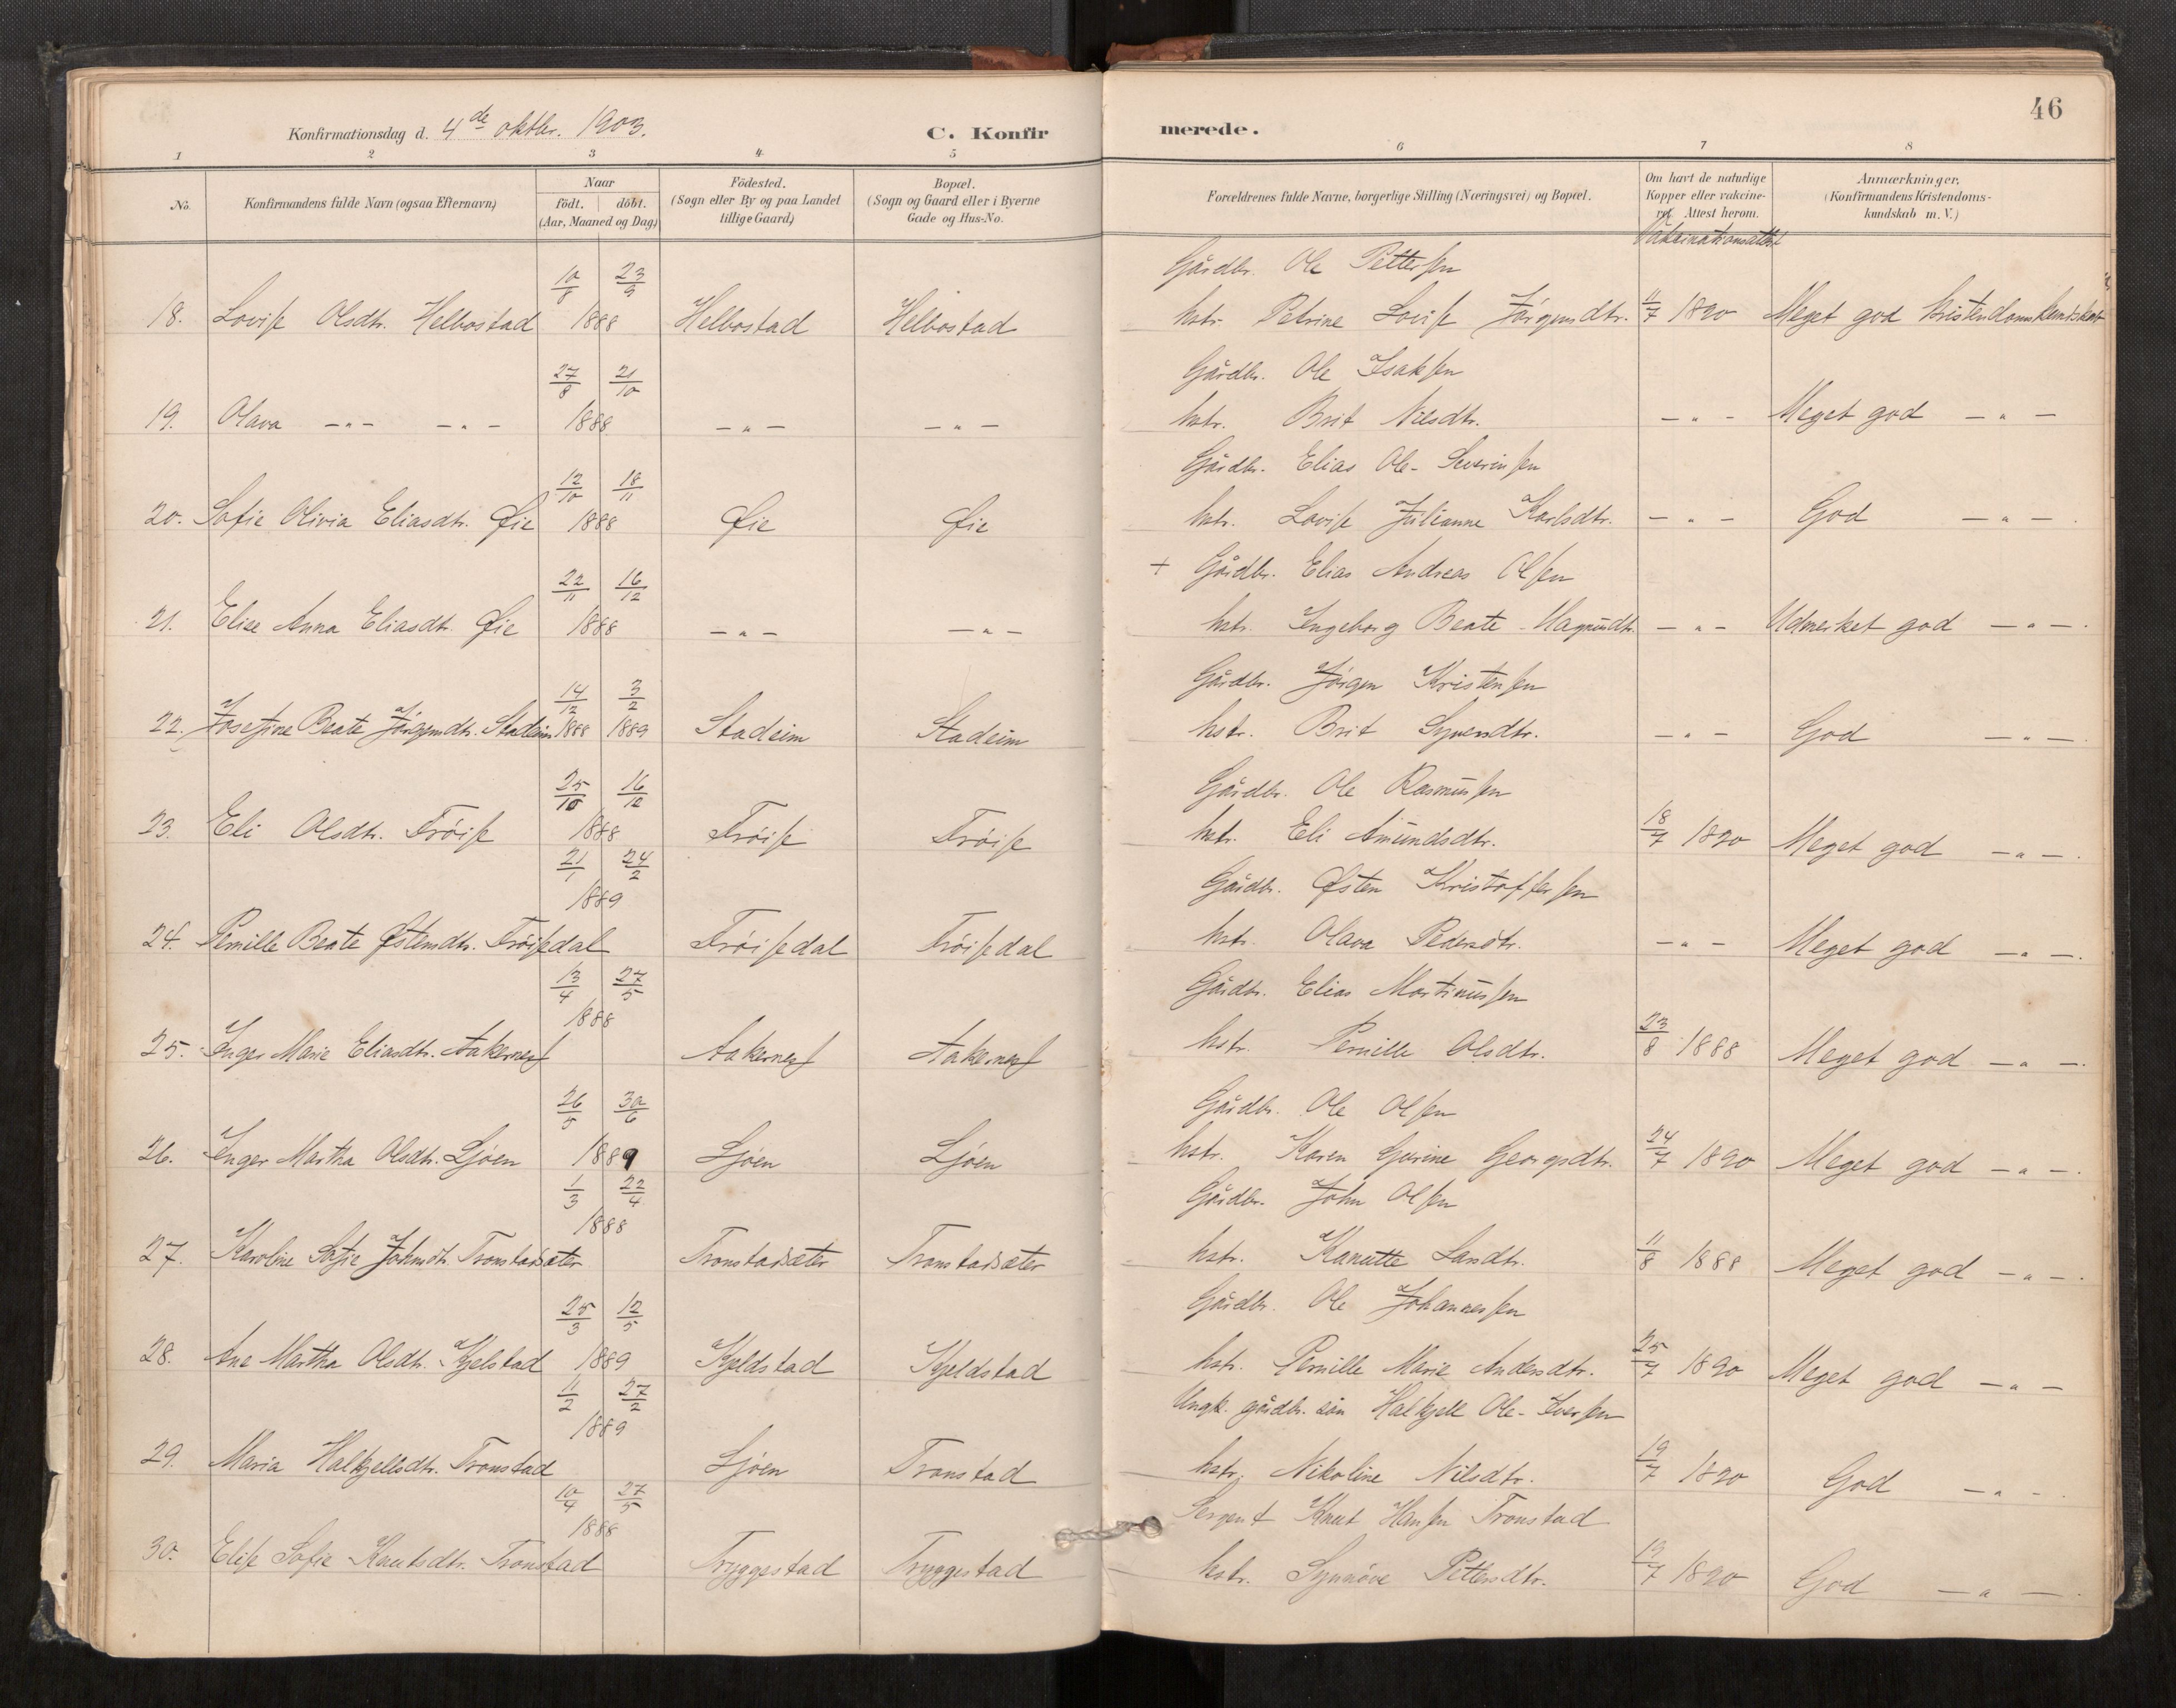 46
Konfirmationsdag d. 4de oktbr. 1903.
C. Konfirmerede.
1 2 3 4 5 6 7 8
No.
Konfirmandens fulde Navn (ogsaa Efternavn)
Naar
födt. | döbt.
(Aar, Maaned og Dag)
Födested.
(Sogn eller By og paa Landet
tillige Gaard)
Bopæl.
(Sogn og Gaard eller i Byerne
Gade og Hus-No.
Forældrenes fulde Navne, borgerlige Stilling (Næringsvei) og Bopæl.
Om havt de naturlige
Kopper eller vakcine-
ret. Attest herom.
Anmærkninger.
(Konfirmandens Kristendoms-
kundskab m. V.)
Vakcinationsattest
10/8 23/9 Gårdbr. Ole Petterſen
18. Loviſe Olsdtr. Helbostad 1888 Helbostad Helbostad hstr. Petrine Loviſe Jörgensdtr. 11/7 1890 Meget god Kristendomskundskab
27/8 21/10 Gårdbr. Ole Isakſen
19. Olava —„— —„— 1888 —„— —„— hstr. Brit Nilsdtr. —„— Meget god —„—
12/10 18/11 Gårdbr. Elias Ole-Severinſen
20. Sofie Olivia Eliasdtr. Øie 1888 Øie Øie hstr. Loviſe Julianne Karlsdtr. —„— God —„—.
22/11 16/12 + Gårdbr. Elias Andreas Olſen
21. Elise Anna Eliasdtr. Øie 1888 —„— —„— hstr. Ingeborg Beate Magnusdtr. —„— Udmerket god —„—.
14/12 3/2 Gårdbr. Jörgen Kristenſen
22. Josefine Beate Jörgensdtr. Stadeim 1888 1889 Stadeim Stadeim hstr. Brit Syvendtr. —„— God —„—.
25/10 16/12 Gårdbr. Ole Rasmusſen
23. Eli Olsdtr. Fröiſe 1888 Fröiſe Fröiſe hstr. Eli Amundsdtr. 18/7 1890 Meget god —„—.
21/1 24/2 Gårdbr. Østen Kristofferſen
1889
24. Pernille Beate Østensdtr. Fröiſedal Fröiſedal Fröiſedal hstr. Olava Pedersdtr. —„— Meget god —„—.
13/4 27/5 Gårdbr. Elias Martinusſen
1888
25. Inger Marie Eliasdtr. Aakerneſ Aakerneſ Aakerneſ hstr. Pernille Olsdtr. 23/8 1888 Meget god —„—.
26/5 30/6 Gårdbr. Ole Olſen
26. Inger Martha Olsdtr. Ljöen 1889 Ljöen Ljöen hstr. Karen Gurine Georgsdtr. 24/7 1890 Meget god —„—.
1/3 22/4 Gårdbr. John Olſen
1888
27. Karoline Sofie Johnsdtr. Tronstadsæter Tronstadsæter Tronstadsæter hstr. Kanutte Larsdtr. 11/8 1888 Meget god —„—.
25/3 12/5 Gårdbr. Ole Johannesſen
28. Ane Martha Olsdtr. Kjelstad 1889 Kjeldstad Kjeldstad hstr. Pernille Marie Andersdtr. 25/7 1890 Meget god —„—
11/2 27/2 Ungk. gårdbr. sön Halkjell Ole-Iverſen
1889
29. Maria Halkjellsdtr. Tronstad Ljöen Tronstad hstr. Nikoline Nilsdtr. 19/7 1890 God —„—
10/4 27/5 Sergent Knut Hanſen Tronstad
1888
30. Eliſe Sofie Knutsdtr. Tronstad Tryggestad Tryggestad hstr. Synnöve Pettersdtr. 19/7 1890 God —„—.